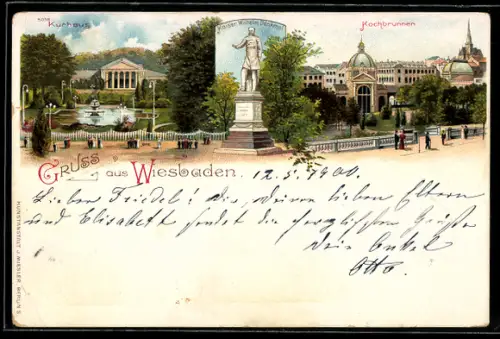 Kurhaus
Kaiser Wilhelm Denkmal
Kochbrunnen
Gruss aus Wiesbaden.
12.5.1900.
Lieber Friedel! Dir, deinen lieben Eltern
und Elisabeth sendet die herzlichsten Grüße
Dein Onkel
Otto.
KUNSTANSTALT J. MIESLER, BERLIN S.